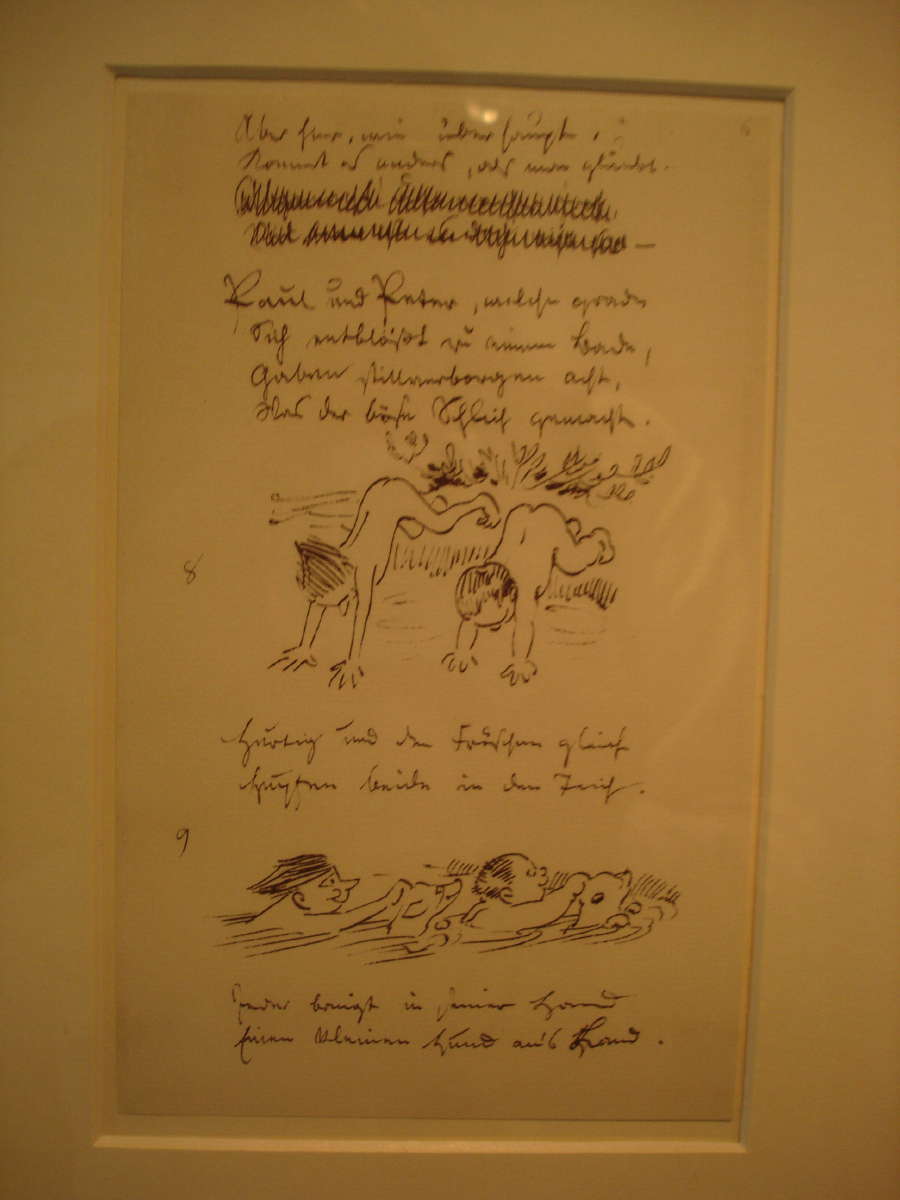 6
Aber hier, wie überhaupt,
Kommt es anders, als man glaubt.
Paul und Peter, welche grade
Sich entblößt zu einem Bade,
Gaben stillverborgen acht,
Was der böse Schlich gemacht.
8
Hurtig und den Fröschen gleich
Hupfen beide in den Teich.
9
Jeder bringt in seiner Hand
Einen kleinen Hund ans Land.